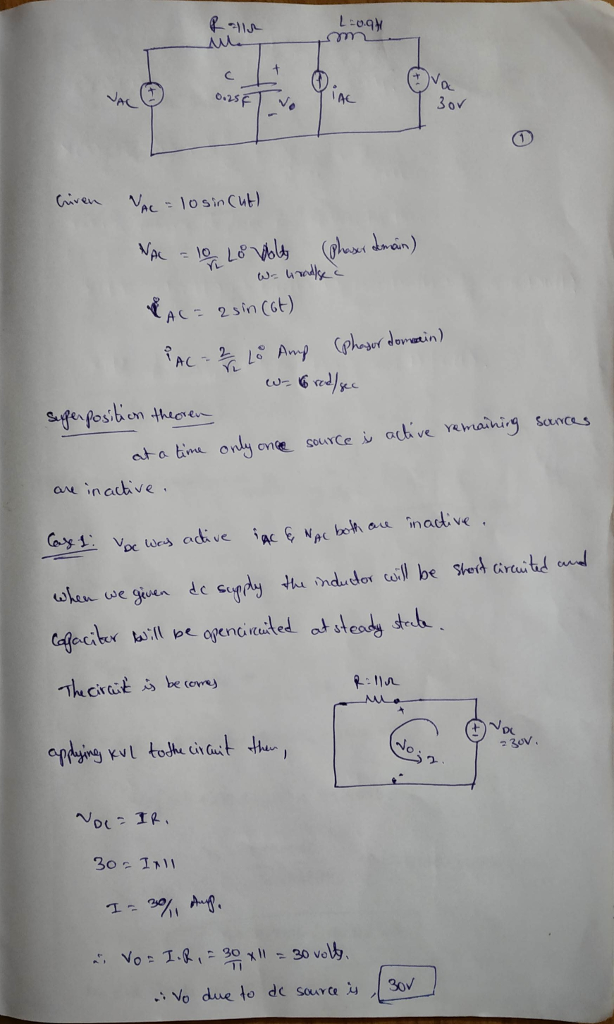 R=11Ω L=0.9H
VAC + - C 0.25F + Vo - iAC + - VDC 30V
①
Given VAC = 10 sin(4t)
VAC = 10/√2 ∠0° Volts (phasor domain)
ω= 4 rad/sec
iAC = 2 sin(6t)
iAC = 2/√2 ∠0° Amp (phasor domain)
ω= 6 rad/sec
superposition theorem
at a time only one source is active remaining sources
are inactive.
Case 1: VDC was active iAC & VAC both are inactive.
when we given dc supply the inductor will be short circuited and
capacitor will be opencircuited at steady state.
The circuit is becomes
R=11Ω
+ Vo - I + - VDC =30V.
applying KVL to the circuit then,
VDC = IR.
30 = I×11
I = 30/11 Amp.
∴ Vo = I.R, = 30/11 ×11 = 30 volts.
∴ Vo due to dc source is, 30V